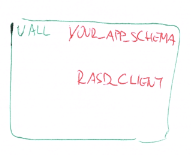 VALL YOUR_APP_SCHEMA
RASD_CLIENT